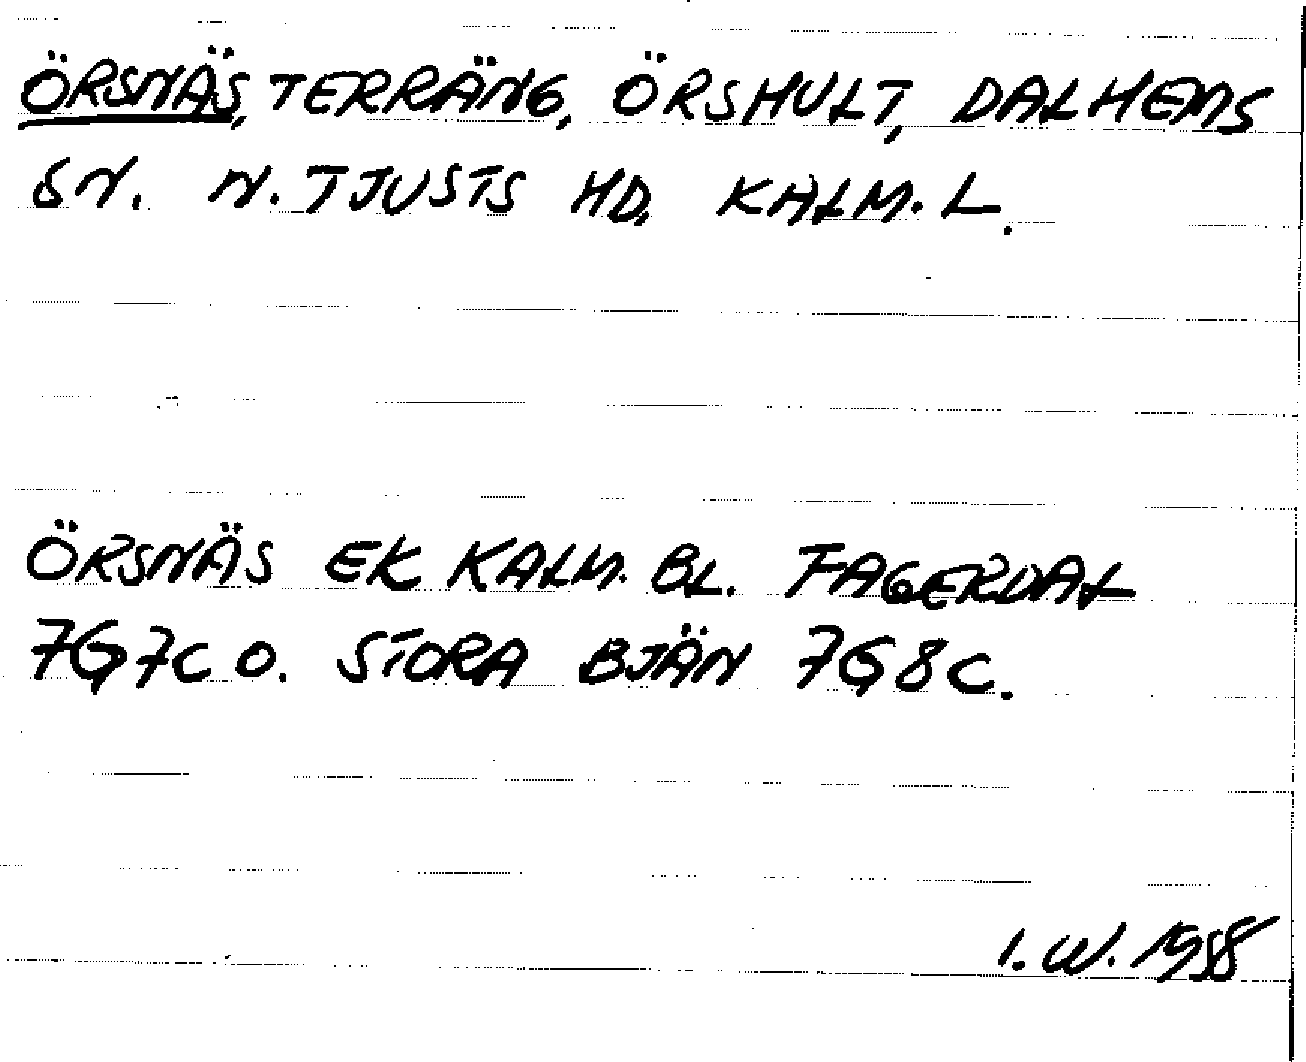 ÖRSNÄS, TERRÄNG, ÖRSHULT, DALHEMS
SN. N. TJUSTS HD, KALM. L.
ÖRSNÄS EK KALM. BL. FAGERDAL
7G7C O. STORA BJÄN 7G8C.
I. W. 1958